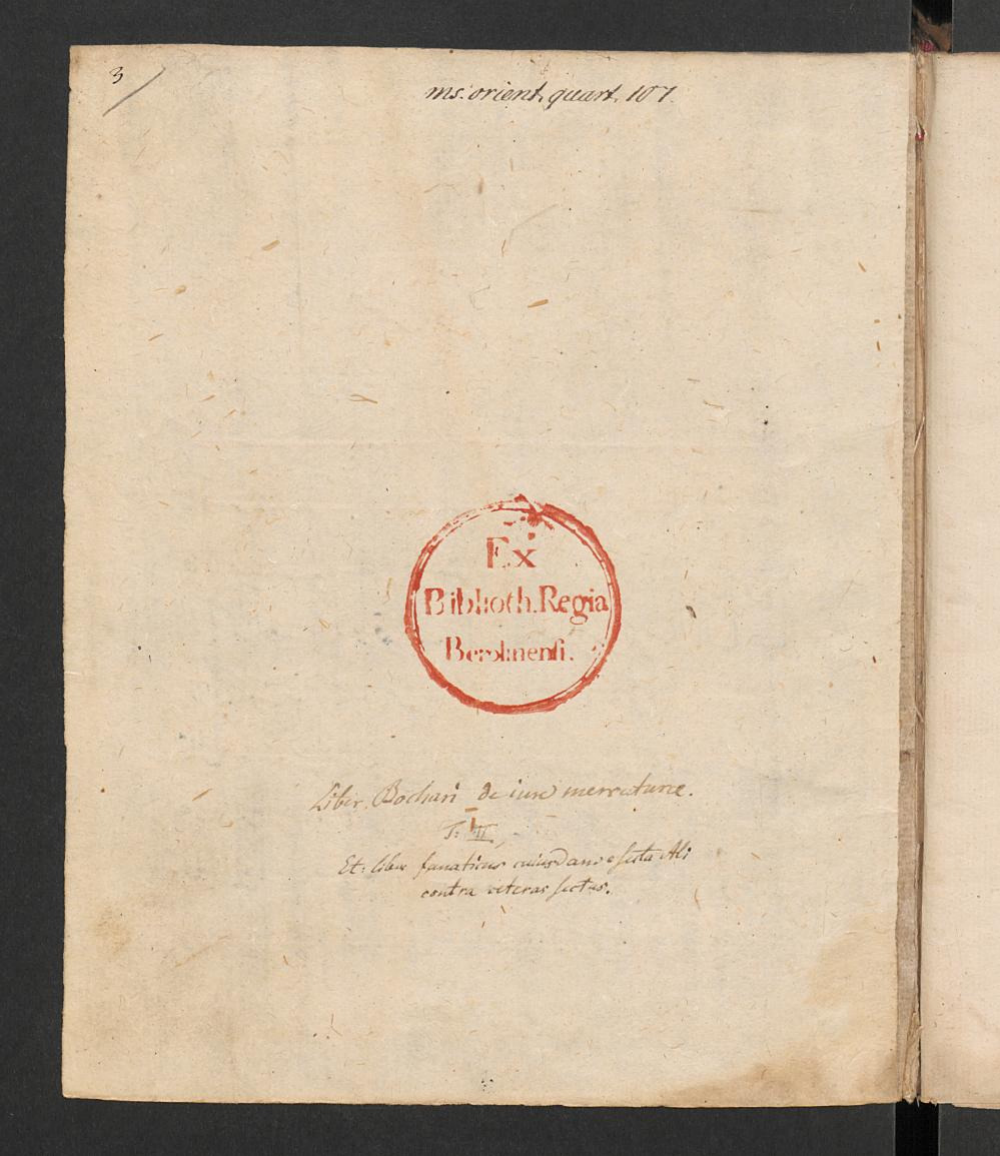 3
ms. orient. quart. 107.
Ex
Biblioth. Regia
Berolinensi.
Liber Bochari de iure mercaturae.
T. II,
Et: liber fanaticus cuiusdam e secta Ali
contra veteras sectas.